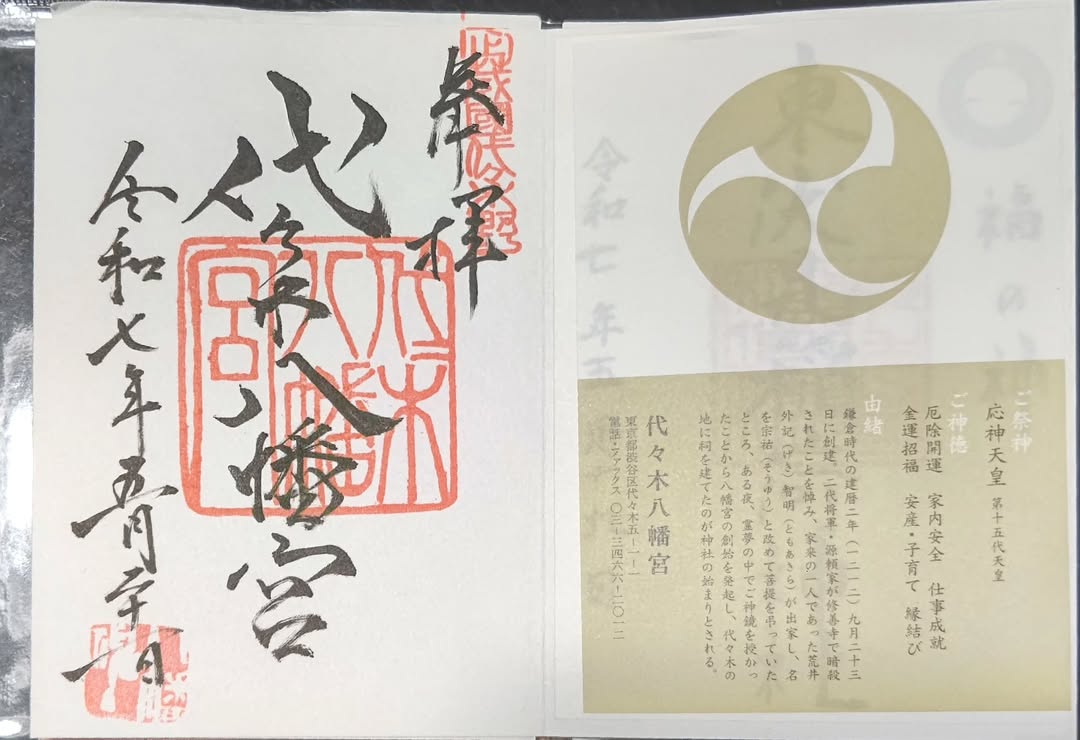 奉拝
代々木八幡宮
令和七年五月二十一日
代々木八幡宮
ご祭神
応神天皇 第十五代天皇
ご神徳
厄除開運 家内安全 仕事成就
金運招福 安産・子育て 縁結び
由緒
鎌倉時代の建暦二年(一二一二)九月二十三
日に創建。二代将軍・源頼家が修善寺で暗殺
されたことを悼み、家来の一人であった荒井
外記(げき)智明(ともあきら)が出家し、名
を宗祐(そうゆう)と改めて菩提を弔っていた
ところ、ある夜、霊夢の中でご神鏡を授かっ
たことから八幡宮の創始を発起し、代々木の
地に祠を建てたのが神社の始まりとされる。
代々木八幡宮
東京都渋谷区代々木五-一-一
電話・ファックス 〇三-三四六六-二〇一二
福の神
令和七年五